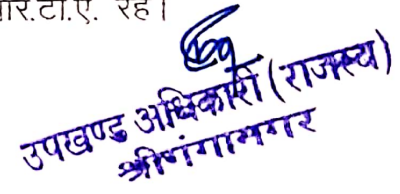 आर.टी.ए. रहे।
उपखण्ड अधिकारी (राजस्व)
श्रीगंगानगर